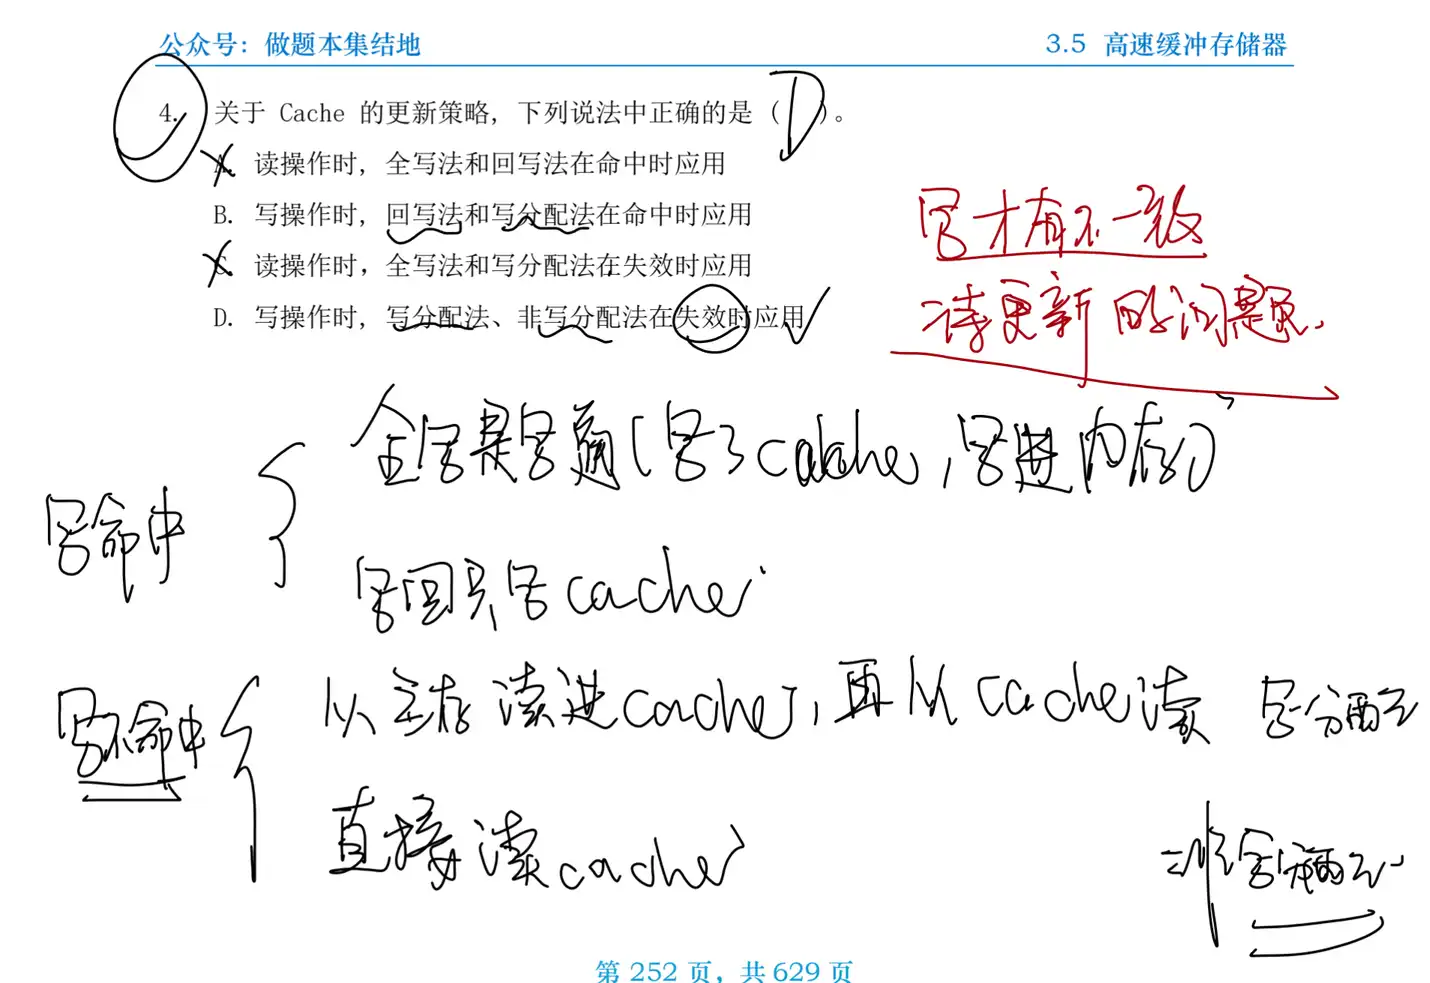 公众号：做题本集结地
3.5 高速缓冲存储器
4. 关于 Cache 的更新策略，下列说法中正确的是（ D ）。
A. 读操作时，全写法和回写法在命中时应用
B. 写操作时，回写法和写分配法在命中时应用
C. 读操作时，全写法和写分配法在失效时应用
D. 写操作时，写分配法、非写分配法在失效时应用
写才有不一致
待更新的问题.
全写是写通（写了cache，写进内存）
写命中
写回只写cache
从主存读进cache，再从cache读 写分配法
写不命中
直接读cache
非写分配法
第 252 页，共 629 页